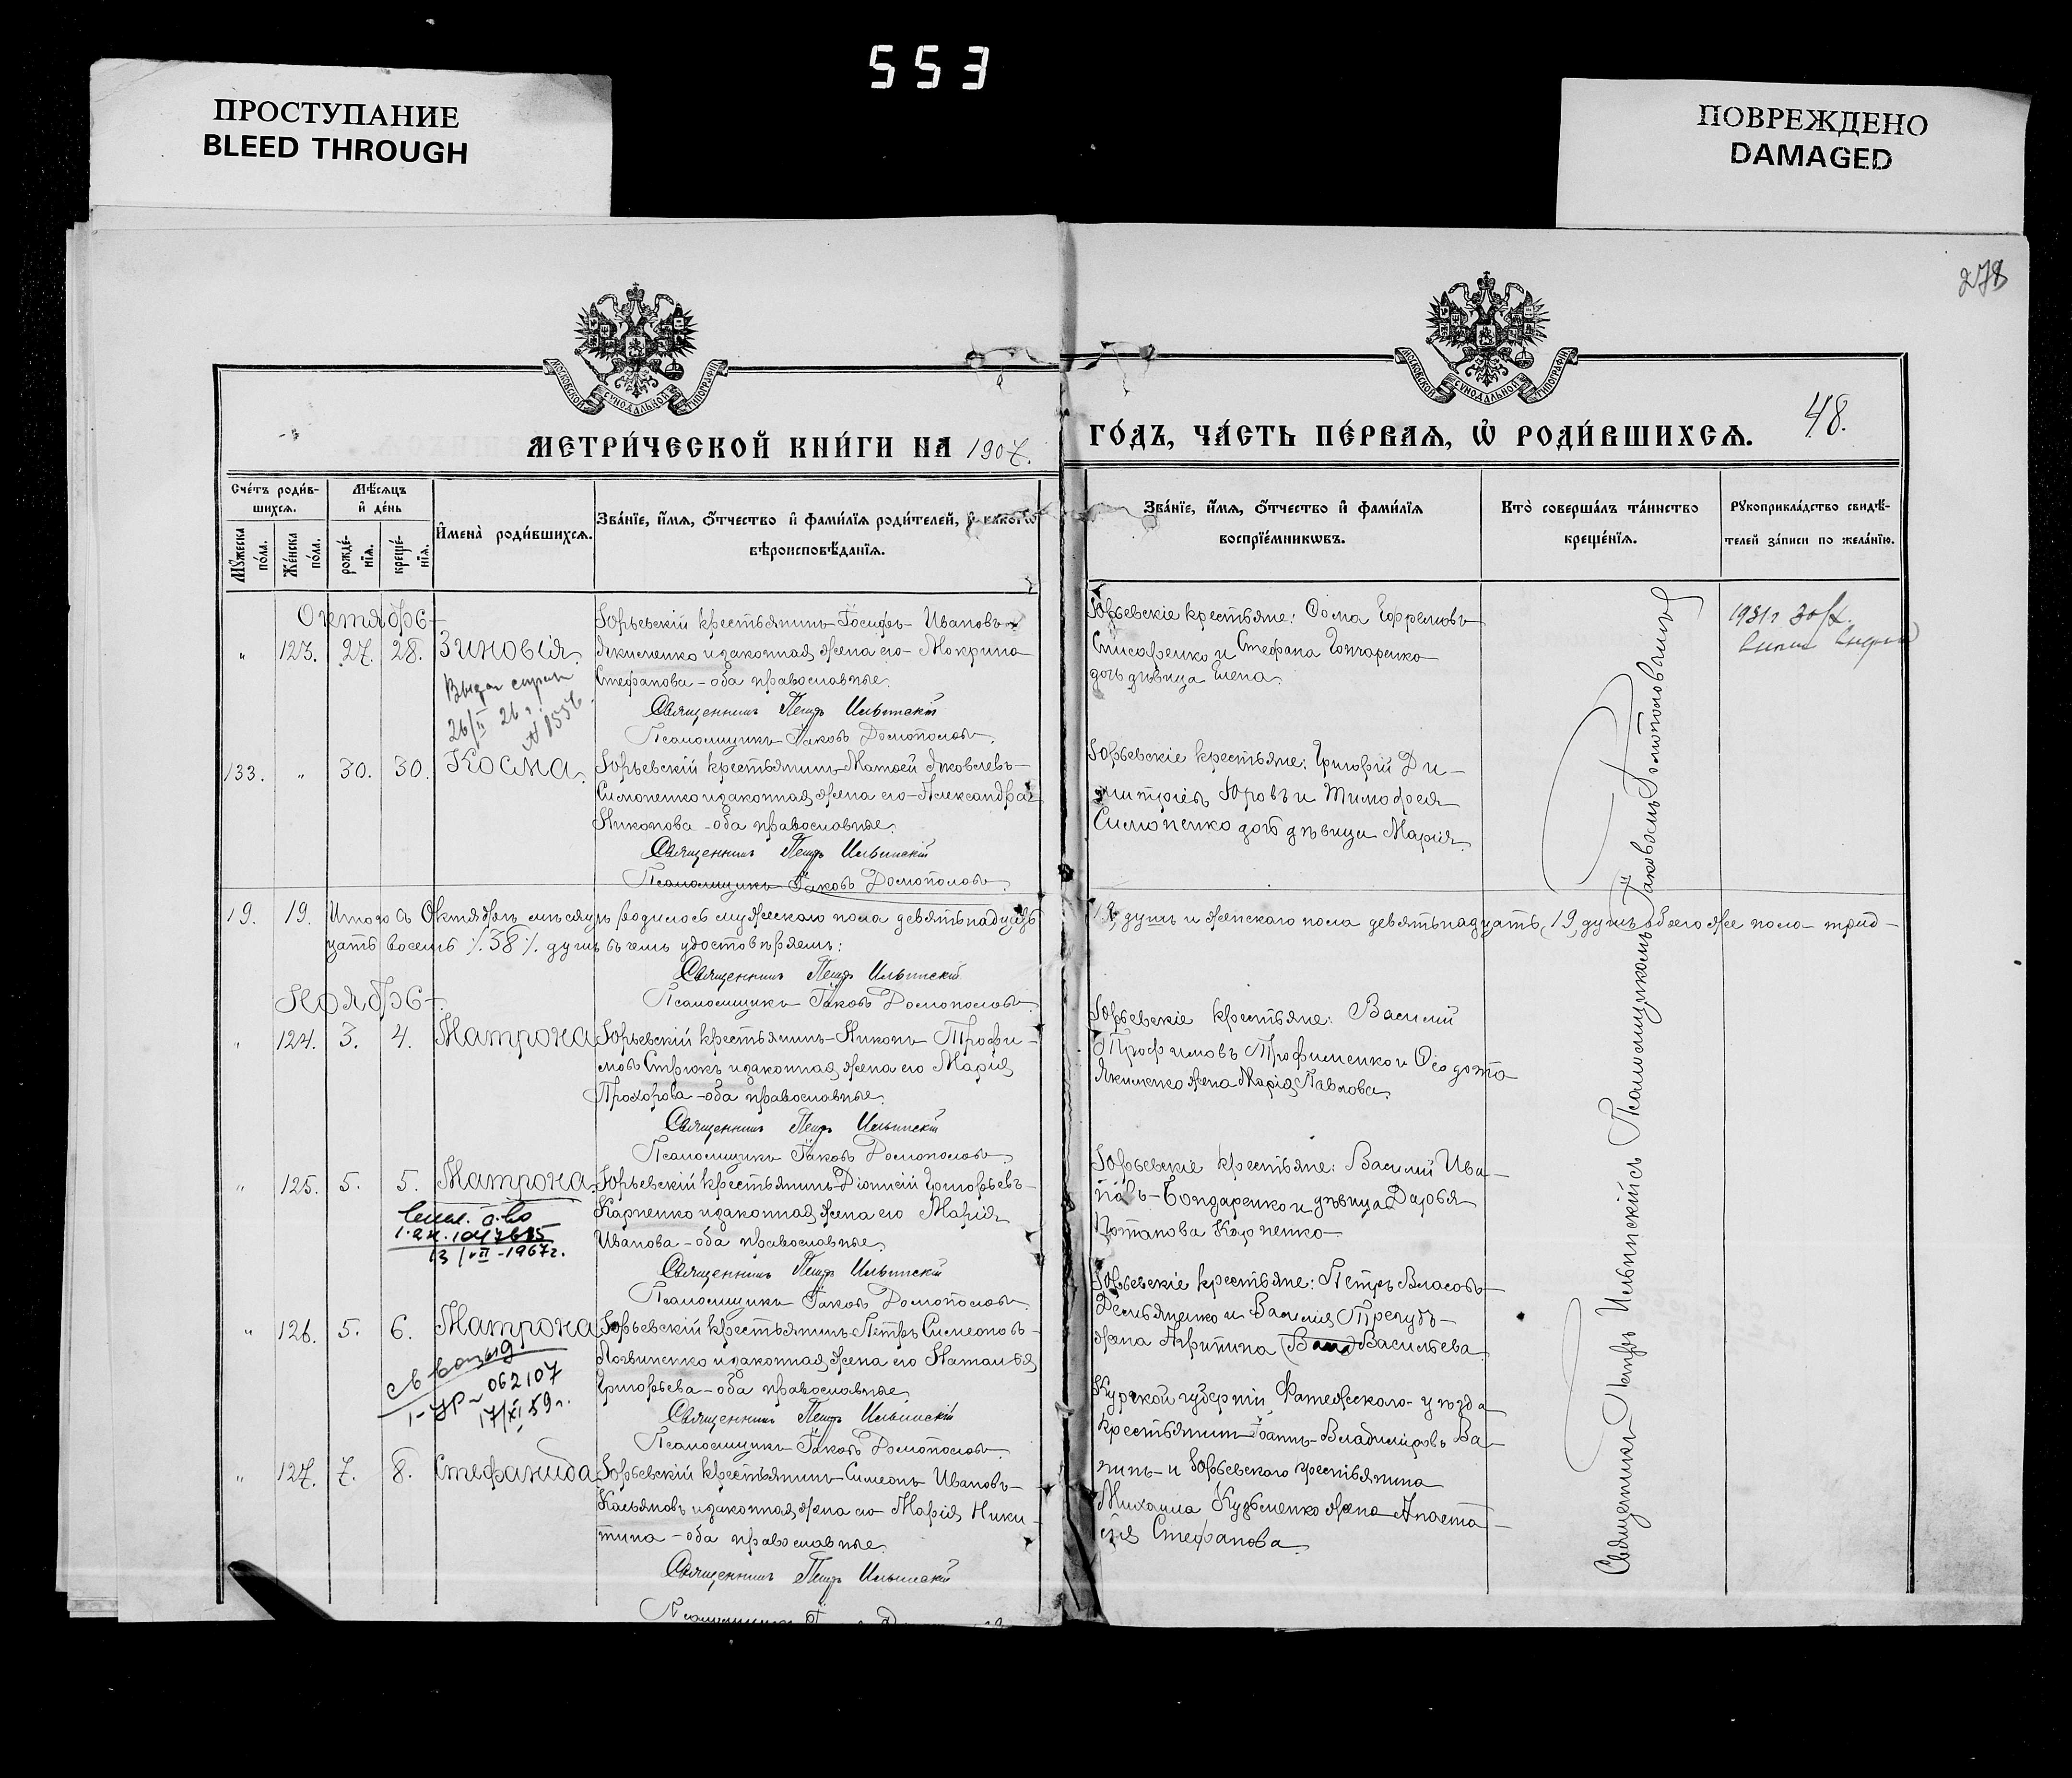 553
ПРОСТУПАНИЕ
BLEED THROUGH
ПОВРЕЖДЕНО
DAMAGED
278
МОСКОВСКОЙ СѴНОДАЛЬНОЙ ТИПОГРАФІИ
МОСКОВСКОЙ СѴНОДАЛЬНОЙ ТИПОГРАФІИ
48.
МЕТРИ́ЧЕСКОЙ КНИ́ГИ НА 1907.
ГО́ДЪ, ЧА́СТЬ ПЕ́РВАѦ, Ѡ҆ РОДИ́ВШИХСѦ.
Сче́тъ роди́в-
шихсѧ.
Мꙋжеска по́ла.
Же́нска по́ла.
Мѣ́сѧцъ
и҆ де́нь
рожде́-
нїѧ.
креще́-
нїѧ.
И҆мена̀ роди́вшихсѧ.
Зва́нїе, и҆́мѧ, ѻ҆́тчество и҆ фами́лїѧ роди́телей, и҆ како́гѡ
вѣроисповѣ́данїѧ.
Зва́нїе, и҆́мѧ, ѻ҆́тчество и҆ фами́лїѧ
воспрїе́мникѡвъ.
Кто̀ соверша́лъ та́инство
креще́нїѧ.
Рꙋкоприкла́дство свидѣ́-
телей за́писи по жела́нїю.
Октябрь
" 123. 27. 28. Зиновія.
Юрьевскій крестьянинъ Іосифъ Ивановъ
Якименко и законная жена его Мокрина
Стефанова - оба православные.
Священникъ Петръ Ильинскій
Псаломщикъ Іаковъ Домотоловъ.
Юрьевскіе крестьяне: Ѳома Ефремовъ
и Стефана Гончаренко
дочь дѣвица Елена.
26/II 26 г.
1931 г 30/X.
133. " 30. 30. Косма.
Юрьевскій крестьянинъ Матѳей Яковлевъ
Симоненко и законная жена его Александра
Никонова - оба православные.
Священникъ Петръ Ильинскій
Псаломщикъ Іаковъ Домотоловъ.
Юрьевскіе крестьяне: Григорій Ди-
митріевъ Юровъ и Тимофея
Симоненко дочь дѣвица Марія.
19. 19. Итого въ Октябрѣ мѣсяцѣ родилось мужеского пола девятьнадцать
19, душъ и женского пола девятьнадцать, 19, душъ обоего же пола трид-
цать восемь ·/. 38 ·/. душъ въ чемъ удостовѣряемъ:
Священникъ Петръ Ильинскій
Псаломщикъ Іаковъ Домотоловъ.
Ноябрь
" 124. 3. 4. Матрона
Юрьевскій крестьянинъ Никонъ Трофи-
мовъ Стрюкъ и законная жена его Марія
Прохорова - оба православные.
Священникъ Петръ Ильинскій
Псаломщикъ Іаковъ Домотоловъ.
Юрьевскіе крестьяне: Василій
Трофимовъ Трофименко и Ѳеодота
Якименко жена Марія Павлова.
" 125. 5. 5. Матрона.
Юрьевскій крестьянинъ Діонисій Григорьевъ
Карпенко и законная жена его Марія
Иванова - оба православные.
Священникъ Петръ Ильинскій
Псаломщикъ Іаковъ Домотоловъ.
Юрьевскіе крестьяне: Василій Ива-
новъ Бондаренко и дѣвица Дарья
Потапова Карпенко
13/VII-1967г.
" 126. 5. 6. Матрона
Юрьевскій крестьянинъ Петръ Симеоновъ
Логвиненко и законная жена его Наталья
Григорьева - оба православные
Священникъ Петръ Ильинскій
Псаломщикъ Іаковъ Домотоловъ
Юрьевскіе крестьяне: Петръ Власовъ
Демьяненко и Василія Трегубъ
жена Агрипина Васильева
062107
17/XI 59 г.
" 127. 7. 8. Стефанида
Юрьевскій крестьянинъ Симеонъ Ивановъ
Касьяновъ и законная жена его Марія Ники-
тина - оба православные.
Священникъ Петръ Ильинскій
Курской губерніи Фатежского уѣзда
крестьянинъ Іоаннъ Владиміровъ Ва-
нинъ и Юрьевского крестьянина
Михаила Кузьменко жена Анаста-
сія Стефанова.
Священникъ Петръ Ильинскій съ Псаломщикомъ Іаковомъ Домотоловымъ